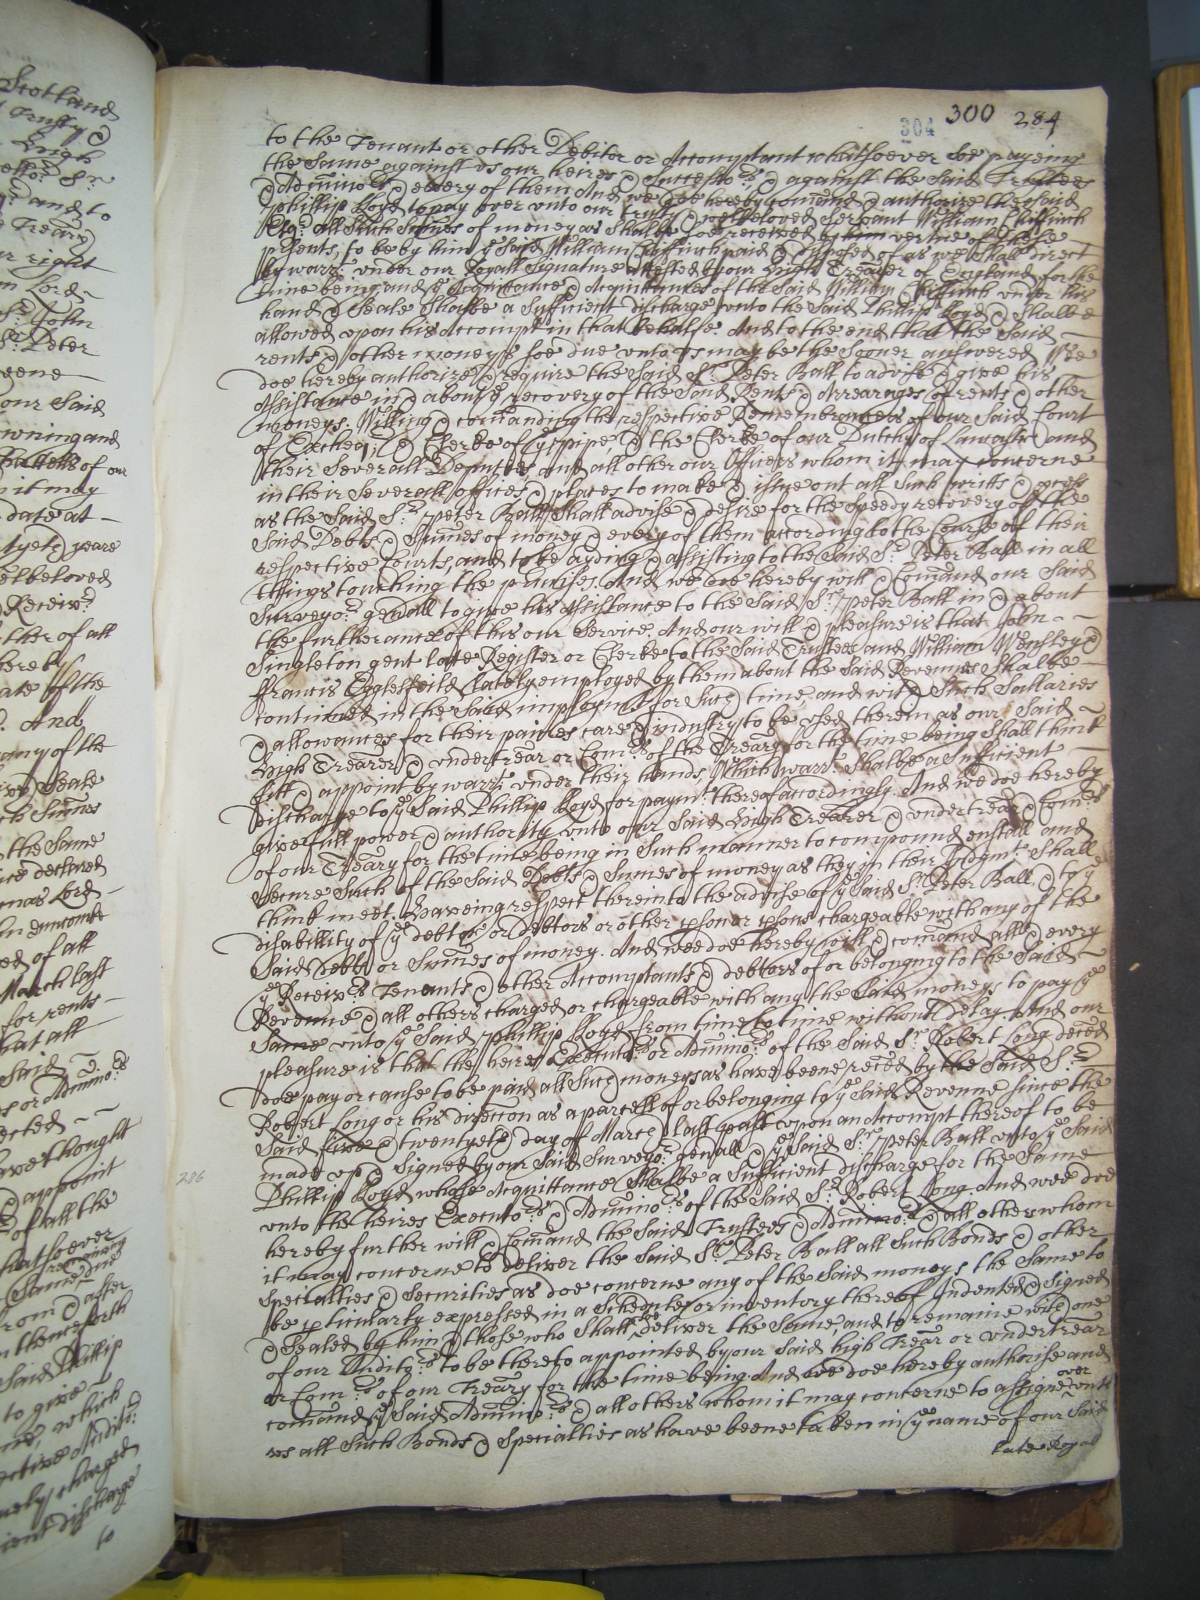 304 300 284
to the Tenant or other Debitor or Accomptant whatsoever soe payeing
the same against us our heires & Successo:rs & against the said Trustees
& Admino:rs & every of them And we doe hereby comand & authorize the said
Phillip Lloyd to pay over unto our trusty & welbeloved Servant William Chiffinch
Esq:r all such Summes of money as shalbe soe received by him vertue of these
p̄sents, to be by him y:e said William Chiffinch paid & disposed of as we shall direct
by warr:t under our Royall Signature attested by our High Treãer of England for the
time being and y:e Acquittance & Acquittances of the said William Chiffinch under his
hand & Seale shalbe a sufficient discharge unto the said Phillip Lloyd & shalbe
allowed upon his Accompt in that behalfe. And to the end that the said
rents & other moneys soe due unto us may be the sooner answered Wee
doe hereby authorize & require the said S:r Peter Ball to advise & give his
Assistance in & about y:e recovery of the said Rents & Arrearages of rents & other
moneys. Willing & comanding the respective Remembrancers of our said Court
of Excheq:r, & Clerke of y:e pipe, & the Clerke of our Dutchy of Lancaster and
their severall Deputies and all other our Officers whom it may concerne
in their severall offices & places to make & issue out all such writts & p̄cess
as the said S:r Peter Ball shall advise & desire for the speedy recovery of the
said Debts & Summes of money & every of them according to the Course of their
respective Courts, and to be ayding & assisting to the said S:r Peter Ball in all
things touching the p̄misses. And we doe hereby will & Comand our said
Surveyo:r gen̄all to give his Assistance to the said S:r Peter Ball in & about
the furtherance of this our Service. And our will & pleasure is that John
Singleton gent late Register or Clerke to the said Trustees and William Wensley &
ffrancis Egglesfeild lately employed by them about the said Revenues shalbe
continued in the said imploym:t for such time, and with such Sallaries
& allowances for their paines care & industry to be used therein as our said
High Treãer & undertreãer or Com:rs of the Treãry for the time being shall thinke
fitt & appoint by warr:t under their hands, Which warr:t shalbe a sufficient
discharge to y:e said Phillip Lloyd for paym:t thereof accordingly. And wee doe hereby
give full power & authority unto our said High Treãer & undertreãer & Com:rs
of our Treãry for the time being in such manner to compound enstall and
secure such of the said Debts & Summes of money as they in their Judgm:t shall
think meet. Haveing respect therein to the advise of y:e said S:r Peter Ball, & to y:e
disabillity of y:e debtor or debtors or other p̱son or p̱sons chargeable with any of the
said debts or Summes of money. And wee doe hereby will & comand all & every
y:e Receiv:rs Tenants & other Accomptants & debtors of or belonging to the said
Revenue & all others charged or chargeable with any the said moneys to pay y:e
same unto y:e said Phillip Lloyd from time to time without Delay. And our
pleasure is that the heires Executo:rs or Admino:rs of the said S:r Robert Long deced
doe pay or cause to be paid all such moneys as have beene reced by the said S:r
Robert Long or his direccon as a parcell of or belonging to y:e said Revenue since the
said five & twentyeth day of March last past upon an Accompt thereof to be
made up & Signed by our said Surveyo:r gen̄all & y:e said S:r Peter Ball unto y:e said
Phillip Lloyd whose Acquittance shalbe a Sufficient discharge for the same
unto the heires Executo:rs & Admino:rs of the said S:r Robert Long. And wee doe
hereby further will & Comand the said Trustees & Admino:rs & all others whom
it may concerne to deliver the said S:r Peter Ball all such Bonds & other
Specialties & Securities as doe concerne any of the said moneys the same to
be p̱ticularly expressed in a Schedule or inventory thereof Indented & Signed
& Sealed by him & those who shall deliver the same, and to remaine with one
of our Audit:rs to be thereto appointed by our said high Treãr or undertreãr
or Com:rs of our Treãry for the time being And wee doe hereby authorise and
comand y:e said Admino:rs & all others whom it may concerne to assigne over unto
us all such Bonds & Specialties as have beene taken in y:e name of our said
late Royall
286
Scotland
Trusty &
Leigh
S:r
and to
Treãry
right
Lord
S:r John
S:r Peter
our said
of our
it may
date at
yeare
welbeloved
Receiv:r
ther of all
hereby
of the
And
any of the
Seale
Summes
the same
declared
Lord
Duncombe
of all
March last
for rents
that all
said
or Admino:rs
thought
& appoint
of all the
whatsoever
& after
thenceforth
said Phillip
to give
which
charged
discharge
to